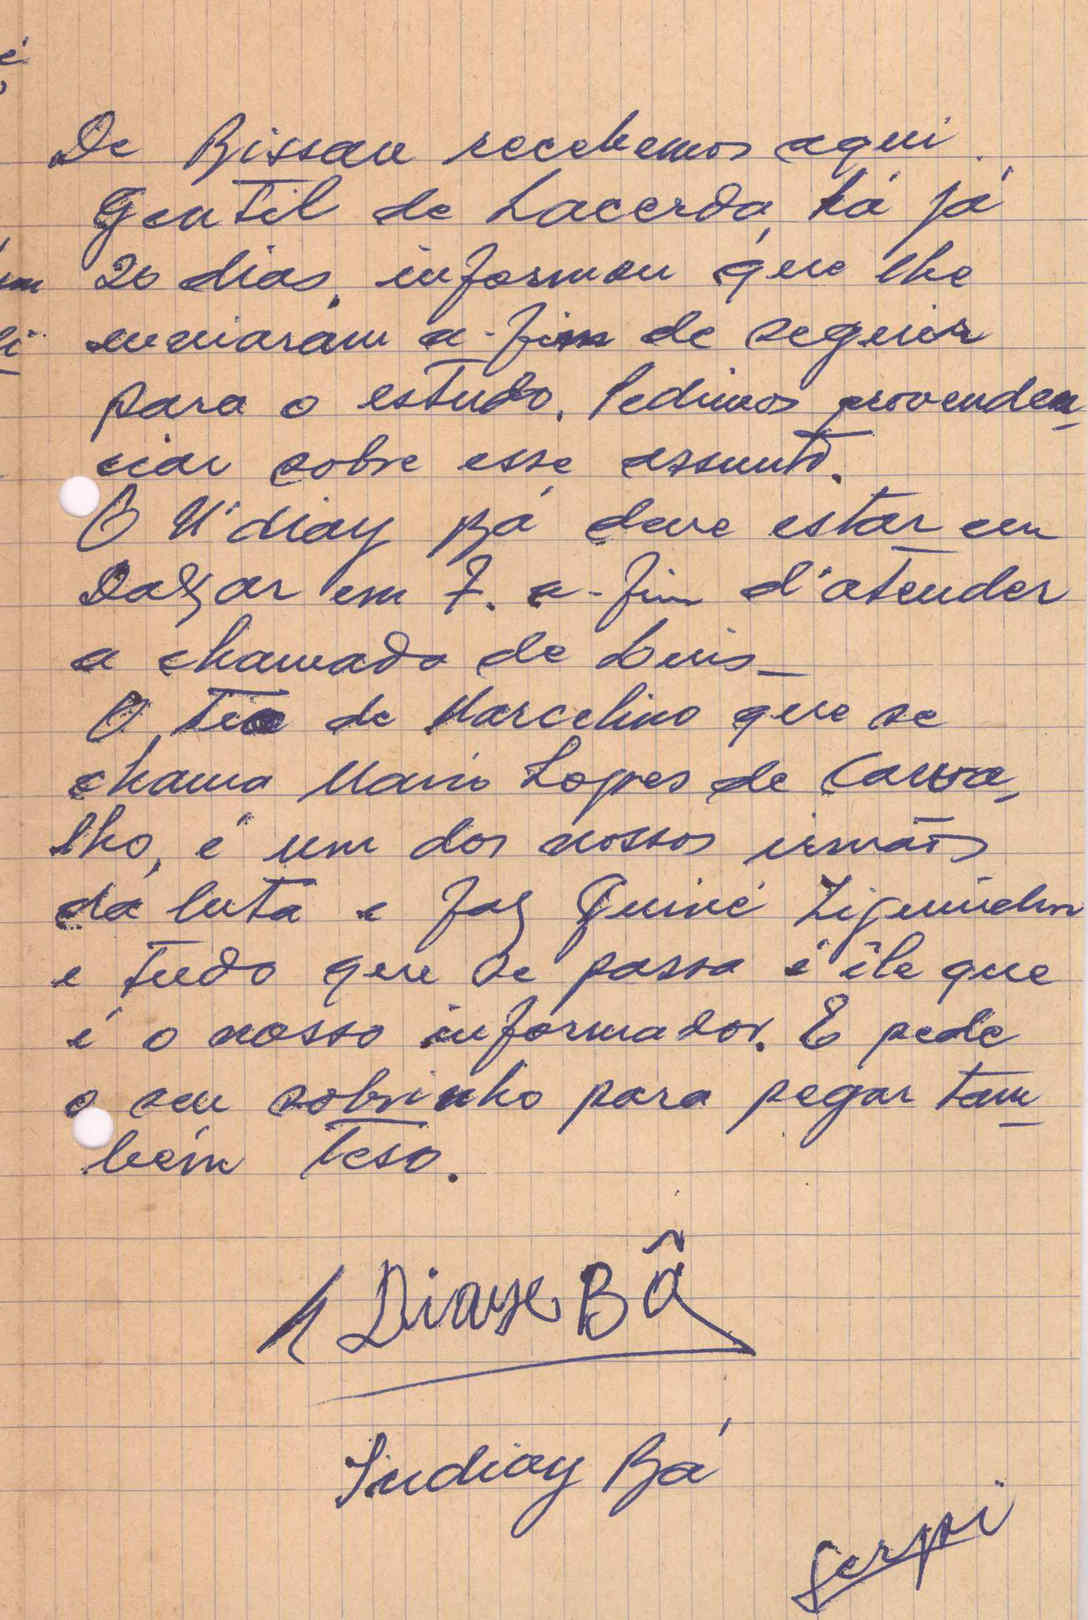 De Bissau recebemos aqui
Gentil de Lacerda, há já
20 dias, informou que lhe
enviaram a-fim de seguir
para o estudo. Pedimos provenden_
ciar sobre esse assunto.
O N'diay Bá deve estar em
Dakar em 7. a-fim d'atender
a chamada de Luis_
O Tio de Marcelino que se
chama Mario Lopes de Carva_
lho, é um dos nossos irmãos
da luta e faz Guiné Ziguinchor
e tudo que se passa é êle que
é o nosso informador. E pede
o seu sobrinho para pegar tam_
bém teso.
N Diaye Bâ
Indiay Bá